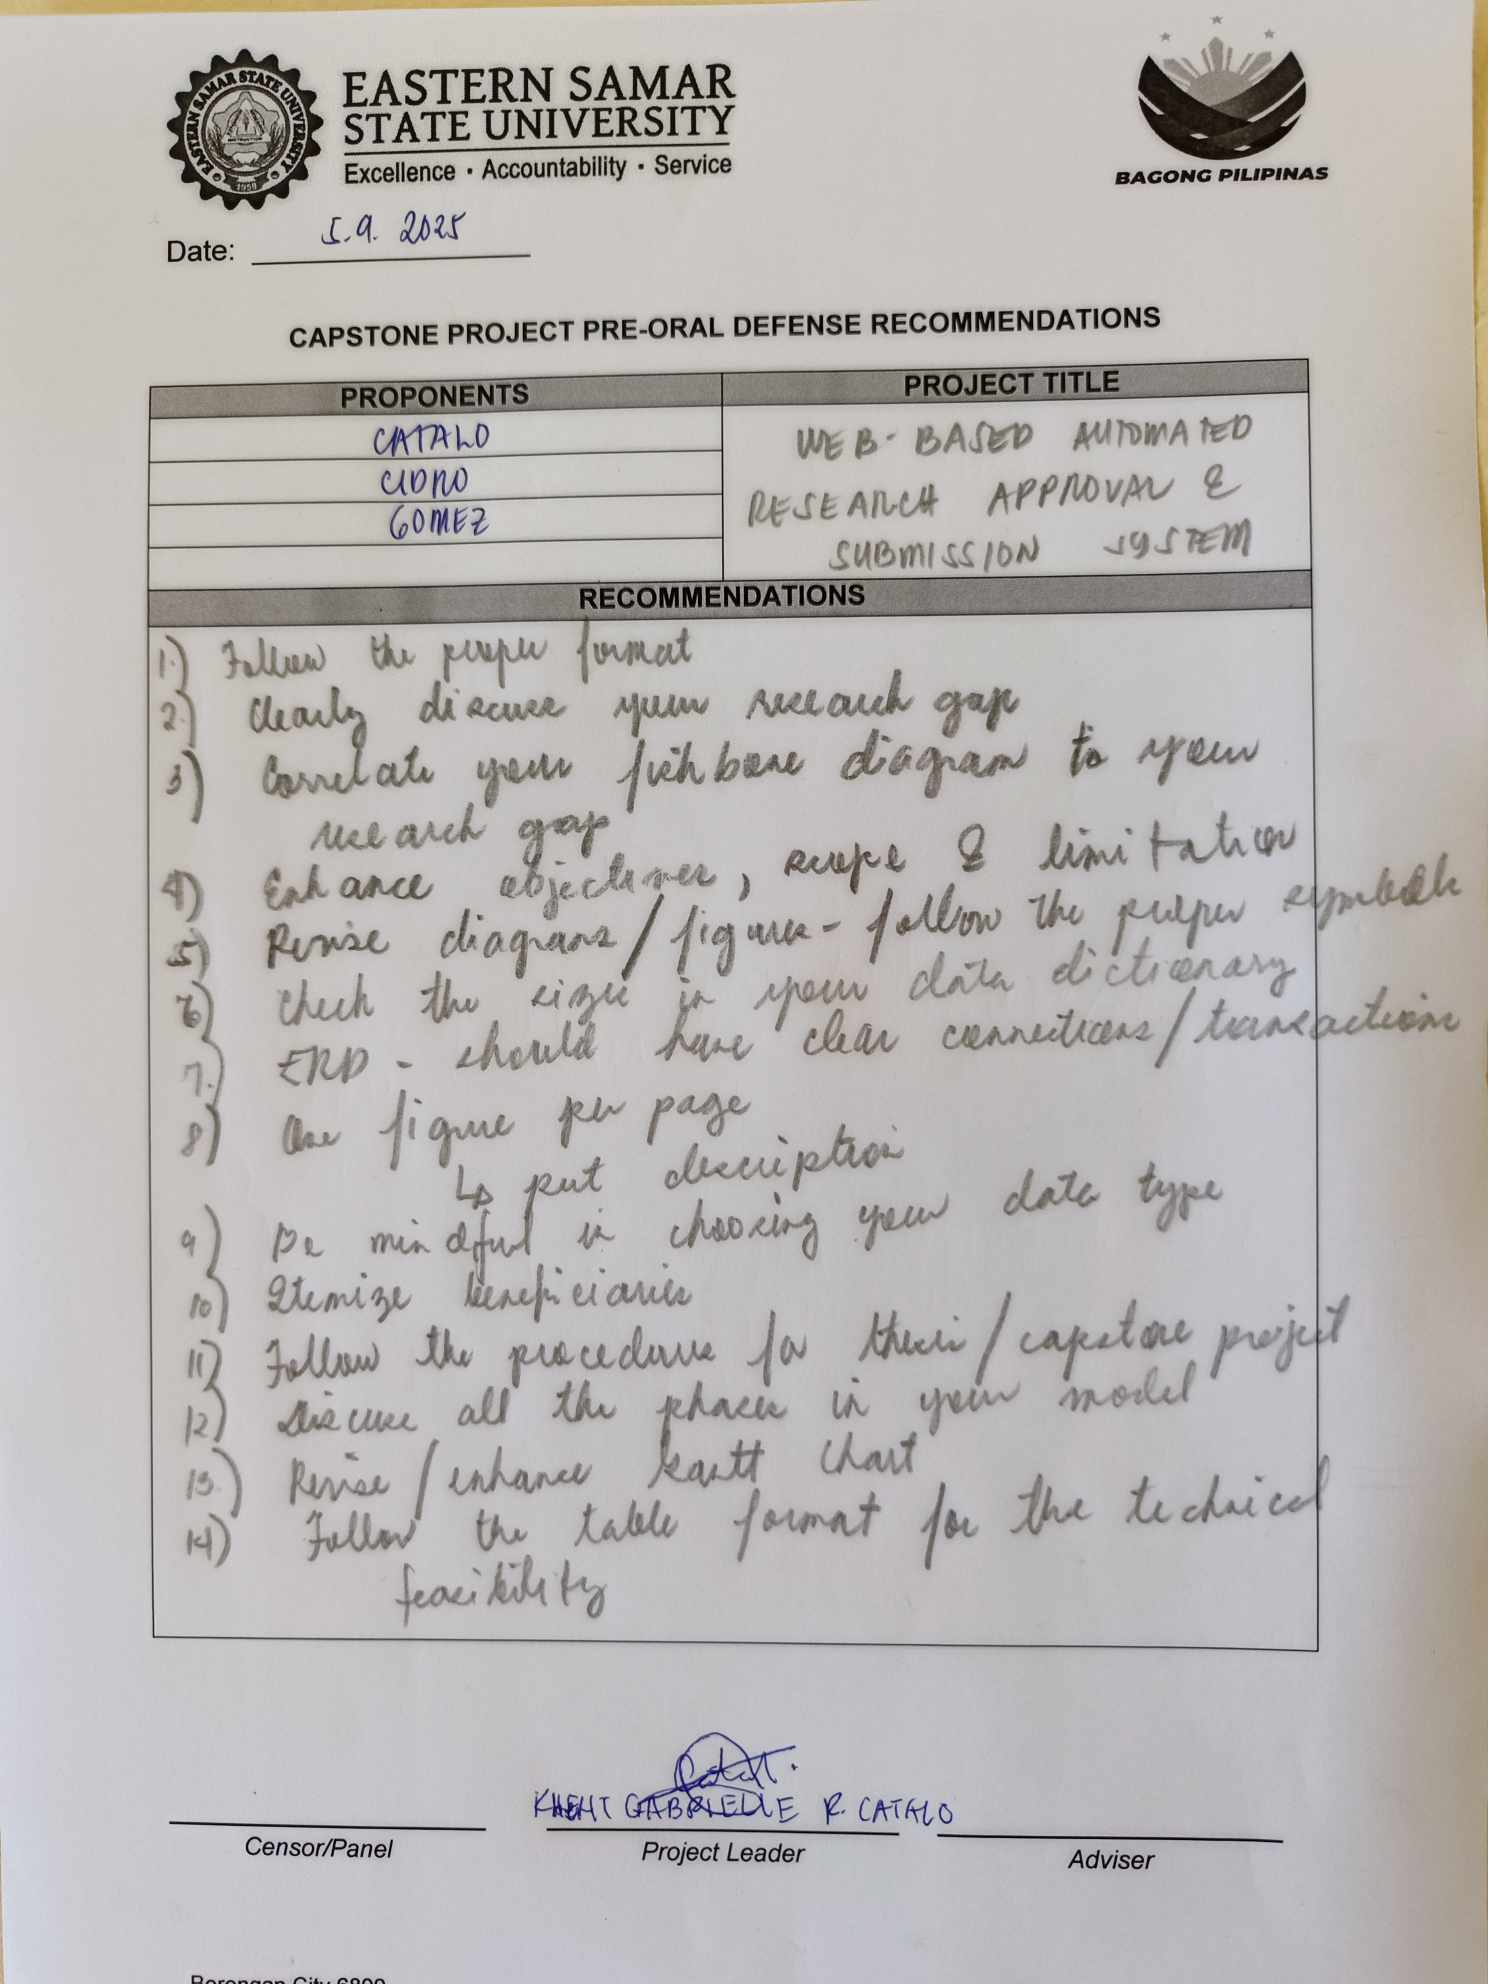 EASTERN SAMAR STATE UNIVERSITY
1959
EASTERN SAMAR
STATE UNIVERSITY
Excellence · Accountability · Service
BAGONG PILIPINAS
Date: 5.9. 2025
CAPSTONE PROJECT PRE-ORAL DEFENSE RECOMMENDATIONS
PROPONENTS
PROJECT TITLE
CATALO
CIDRO
GOMEZ
WEB-BASED AUTOMATED
RESEARCH APPROVAL &
SUBMISSION SYSTEM
RECOMMENDATIONS
1.) Follow the proper format
2.) Clearly discuss your research gap
3) Correlate your fishbone diagram to your
research gap
4) Enhance objectives, scope & limitation
5) Revise diagrams/figures - follow the proper symbols
6) Check the sizes in your data dictionary
7.) ERD - should have clear connections/transactions
8) One figure per page
↳ put description
9) Be mindful in choosing your data type
10) Itemize beneficiaries
11) Follow the procedures for thesis/capstone project
12) Discuss all the phases in your model
13.) Revise/enhance Gantt Chart
14) Follow the table format for the technical
feasibility
KHENT GABRIELLE R. CATALO
Censor/Panel
Project Leader
Adviser
Borongan City 6800